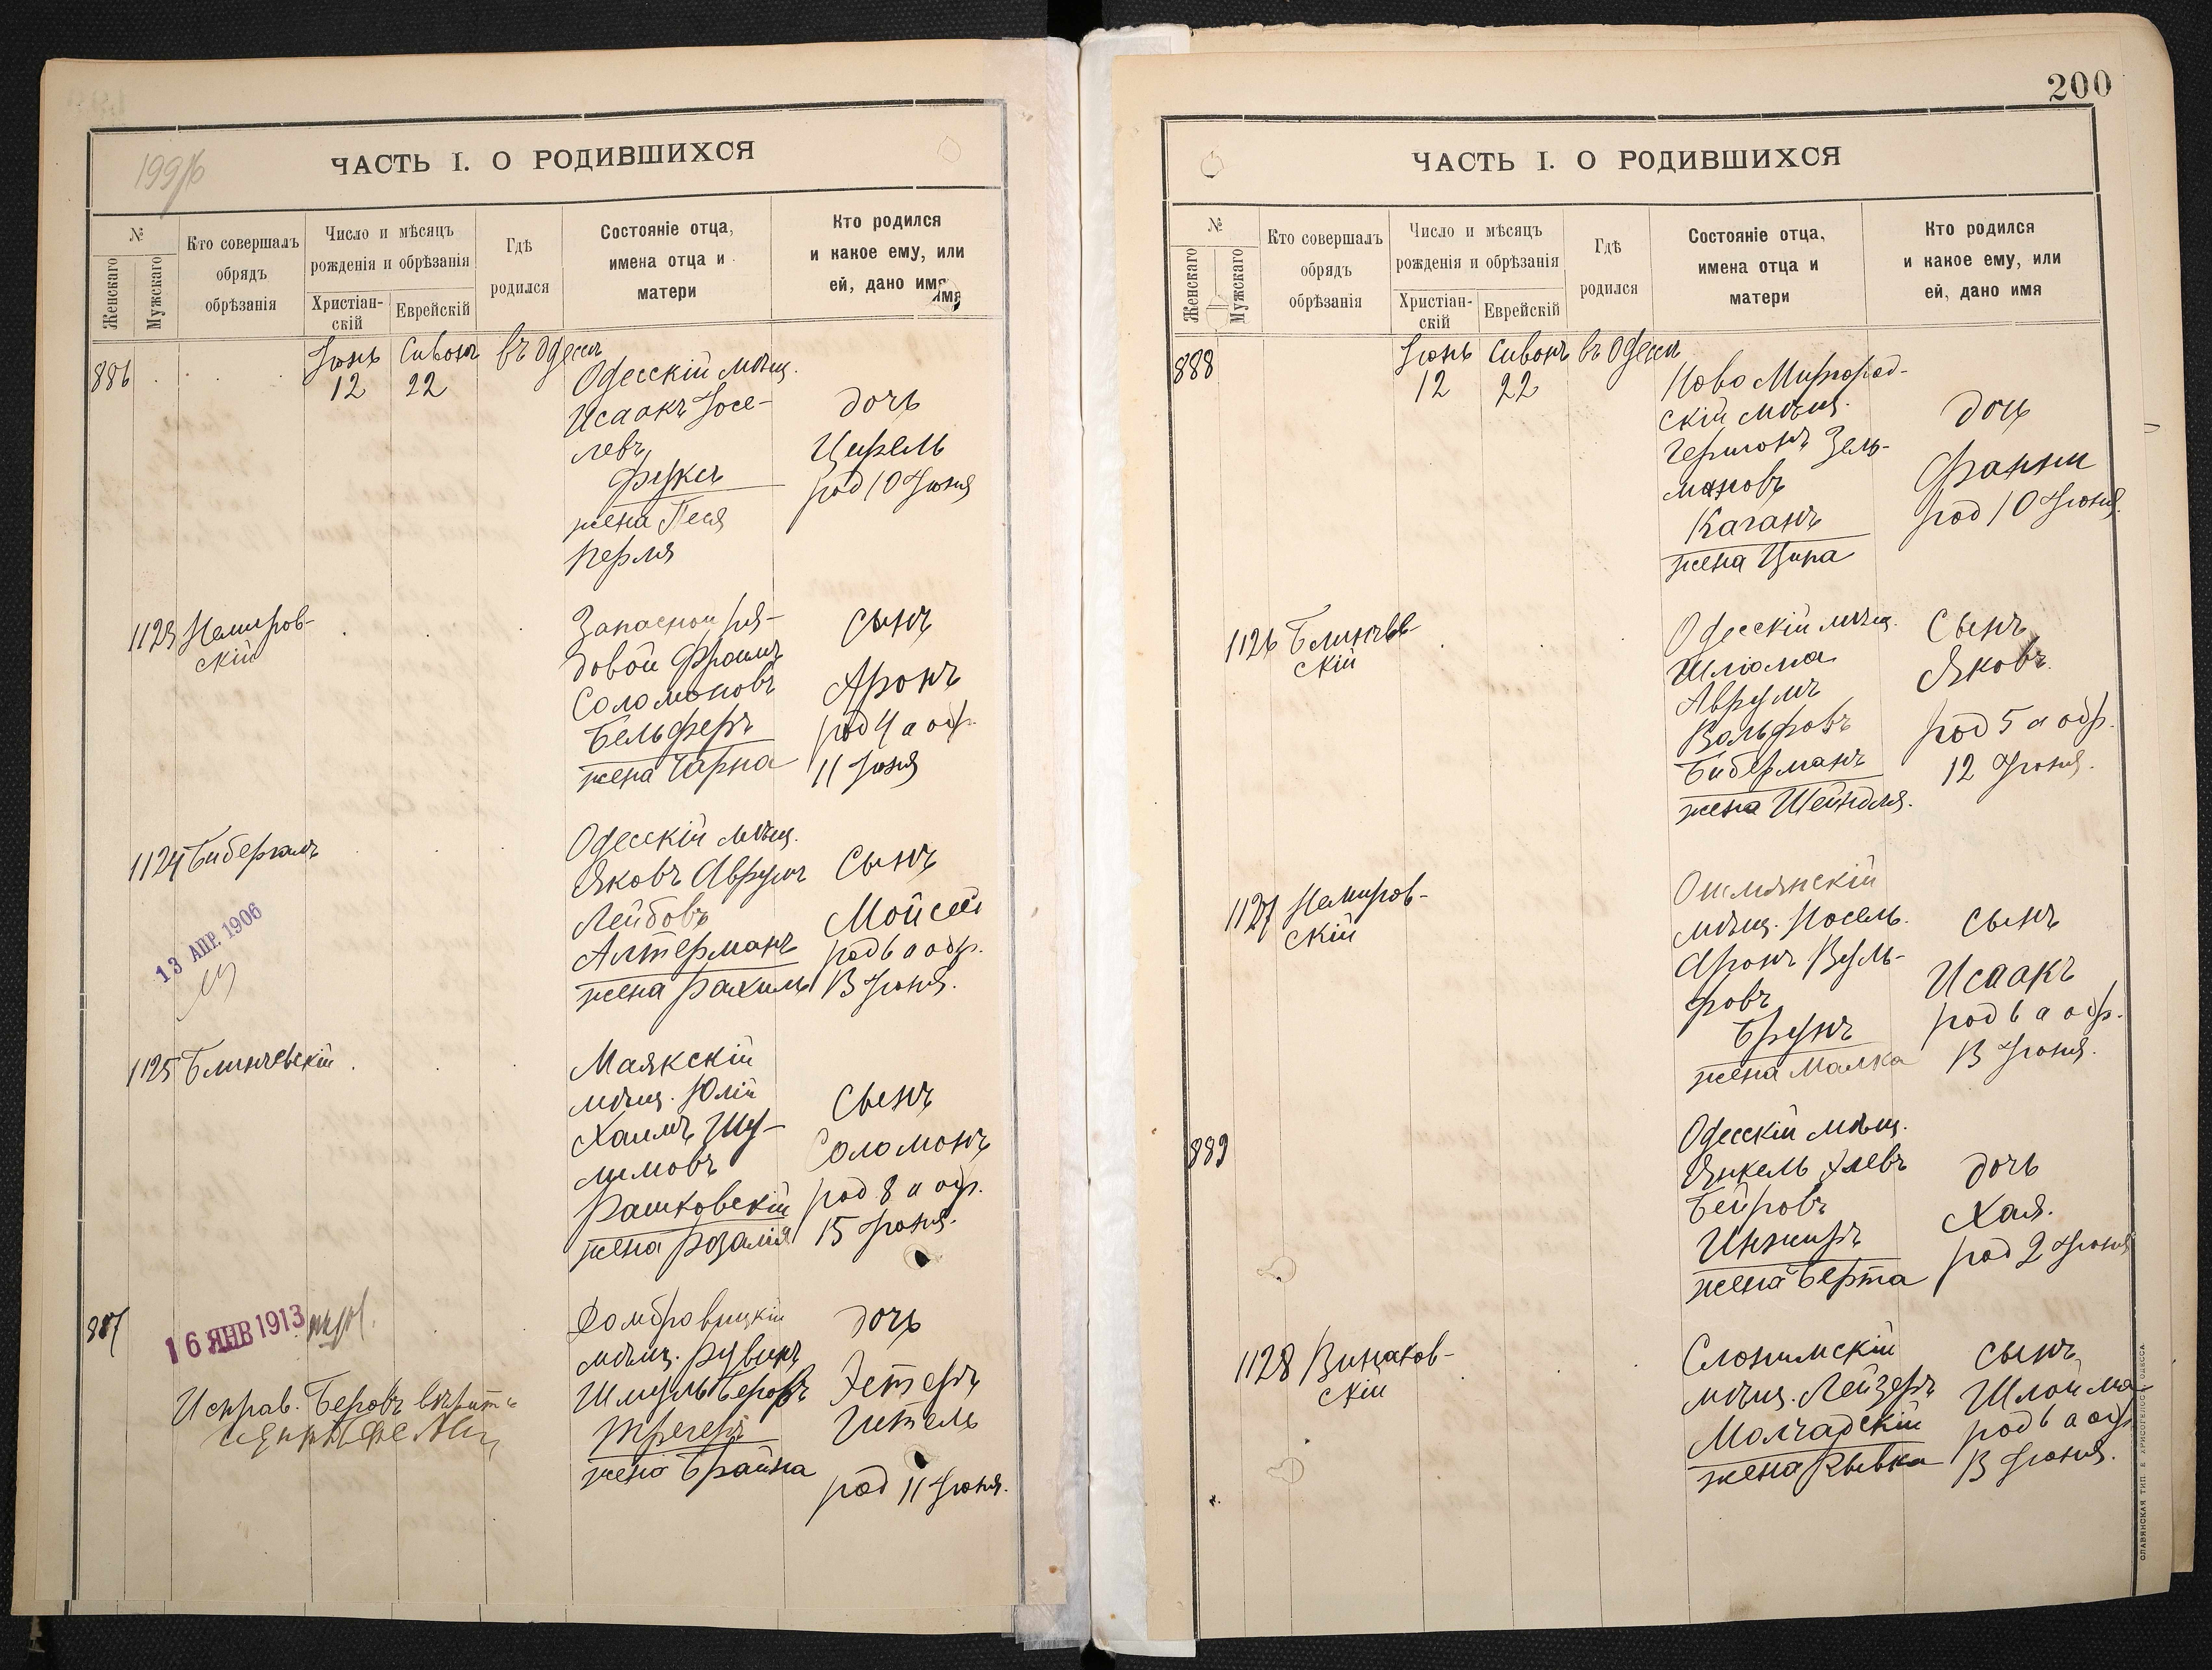 199/б
ЧАСТЬ I. О РОДИВШИХСЯ
№
Женскаго
Мужскаго
Кто совершалъ
обрядъ
обрѣзанія
Число и мѣсяцъ
рожденія и обрѣзанія
Христіан-
скій
Еврейскій
Гдѣ
родился
Состояніе отца,
имена отца и
матери
Кто родился
и какое ему, или
ей, дано имя
886
Іюнь Сивонъ въ Одессѣ
12 22
Одесскій мѣщ.
Исаакъ Іосе-
левъ
Фуксъ
жена Песя
Перля
дочь
Цирель
род 10 Іюня
1123 Немиров-
скій
Запасной ря-
довой Фроимъ
Соломоновъ
Бельферъ
жена Чарна
сынъ
Аронъ
род 4 а обр.
11 Іюня
1124 Бибергалъ
13 АПР. 1906
Одесскій мѣщ.
Яковъ Аврумъ
Лейбовъ
Алтерманъ
жена Рахиль
Сынъ
Мойсей
род 6 а обр.
13 Іюня.
1125 Блинчевскій
Маякскій
мѣщ. Юлій
Хаимъ Шу-
лимовъ
Рашковскій
жена Розалія
Сынъ
Соломонъ
род 8 а обр.
15 Іюня.
887
16 ЯНВ 1913
Исправ. Беровъ вѣрить
Домбровицкій
мѣщ. Рувинъ
Шмуль Беровъ
Трегеръ
жена Брайна
дочь
Эстеръ
Гитель
род 11 Іюня.
200
ЧАСТЬ I. О РОДИВШИХСЯ
№
Женскаго
Мужскаго
Кто совершалъ
обрядъ
обрѣзанія
Число и мѣсяцъ
рожденія и обрѣзанія
Христіан-
скій
Еврейскій
Гдѣ
родился
Состояніе отца,
имена отца и
матери
Кто родился
и какое ему, или
ей, дано имя
888
Іюнь Сивонъ въ Одессѣ
12 22
Ново Миргород-
скій мѣщ.
Гершонъ Зель-
мановъ
Каганъ
жена Ципа
дочь
Фанни
род 10 Іюня.
1126 Блинчев-
скій
Одесскій мѣщ.
Шліома
Аврумъ
Вольфовъ
Биберманъ
жена Шейндля.
Сынъ
Яковъ.
род 5 а обр.
12 Іюня.
1127 Немиров-
скій
Ошмянскій
мѣщ. Іосель
Аронъ Вуль-
фовъ
Брунъ
жена Малка
сынъ
Исаакъ
род 6 а обр.
13 Іюня.
889
Одесскій мѣщ.
Янкель Хлевъ
Бейровъ
Инжиръ
жена Берта
дочь
Хая.
род 2 Іюня
1128 Винаков-
скій
Слонимскій
мѣщ. Лейзеръ
Молчадскій
жена Рывка
сынъ
Шлойма
род 6 а обр
13 Іюня.
СЛАВЯНСКАЯ ТИП. Е. ХРИСОГЕЛОСЪ, ОДЕССА.